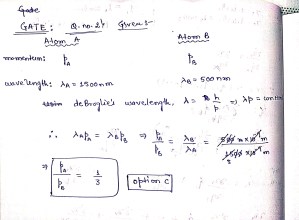 Gate
GATE: Q.no. 24 Given:-
Atom A Atom B
momentum: P_A P_B
wavelength: λ_A = 1500nm λ_B = 500nm
using deBroglie's wavelength, λ = h/p ⇒ λp = const
∴ λ_A P_A = λ_B P_B ⇒ P_A/P_B = λ_B/λ_A = 500 × 10⁻⁹ m / 1500 × 10⁻⁹ m
⇒ P_A/P_B = 1/3 option C